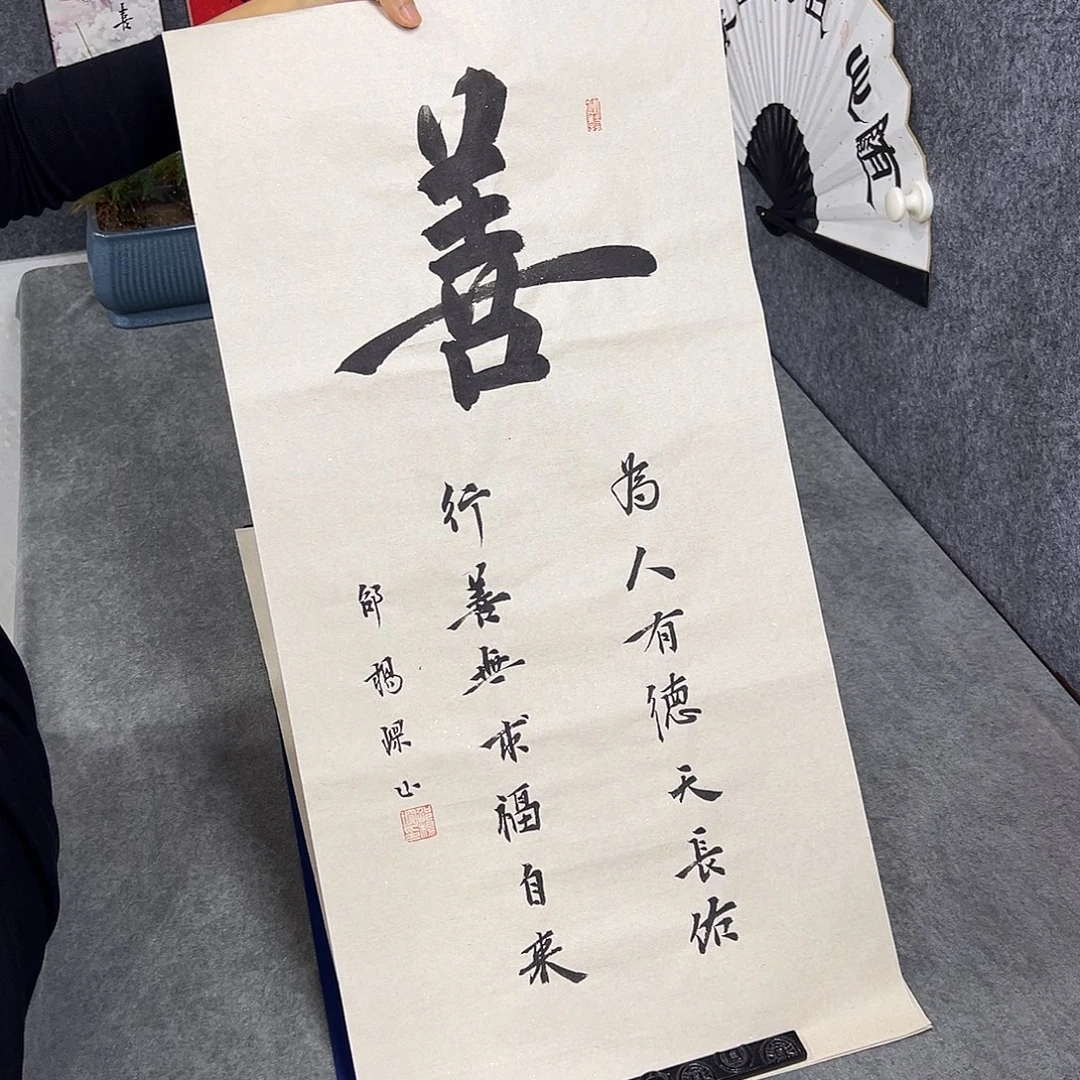 善
為人有德天長佑
行善無求福自來
邰楊深山
喜